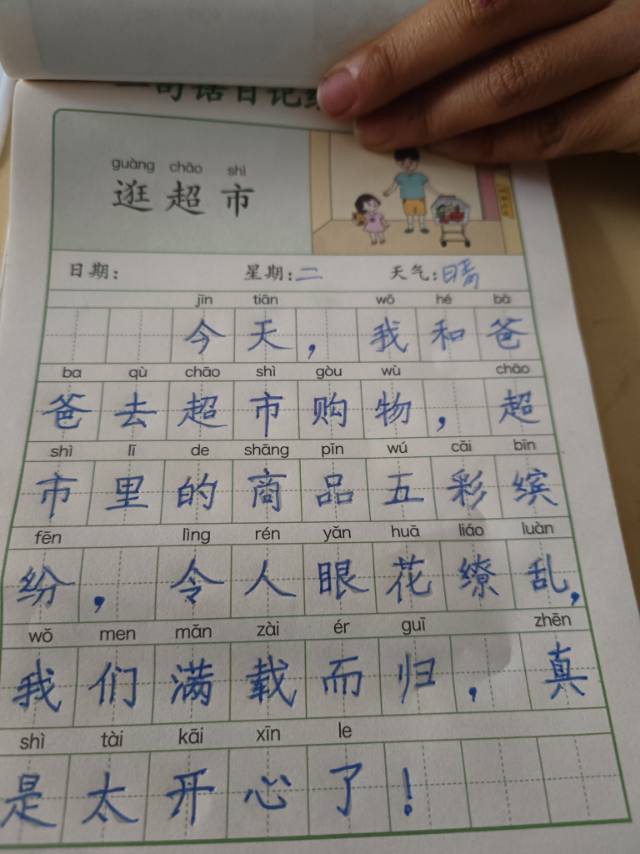 一句话日记
guàng chāo shì
逛超市
日期： 星期：二 天气：晴
jīn tiān wǒ hé bà
今天，我和爸
ba qù chāo shì gòu wù chāo
爸去超市购物，超
shì lǐ de shāng pǐn wǔ cǎi bīn
市里的商品五彩缤
fēn lìng rén yǎn huā liáo luàn
纷，令人眼花缭乱，
wǒ men mǎn zài ér guī zhēn
我们满载而归，真
shì tài kāi xīn le
是太开心了！